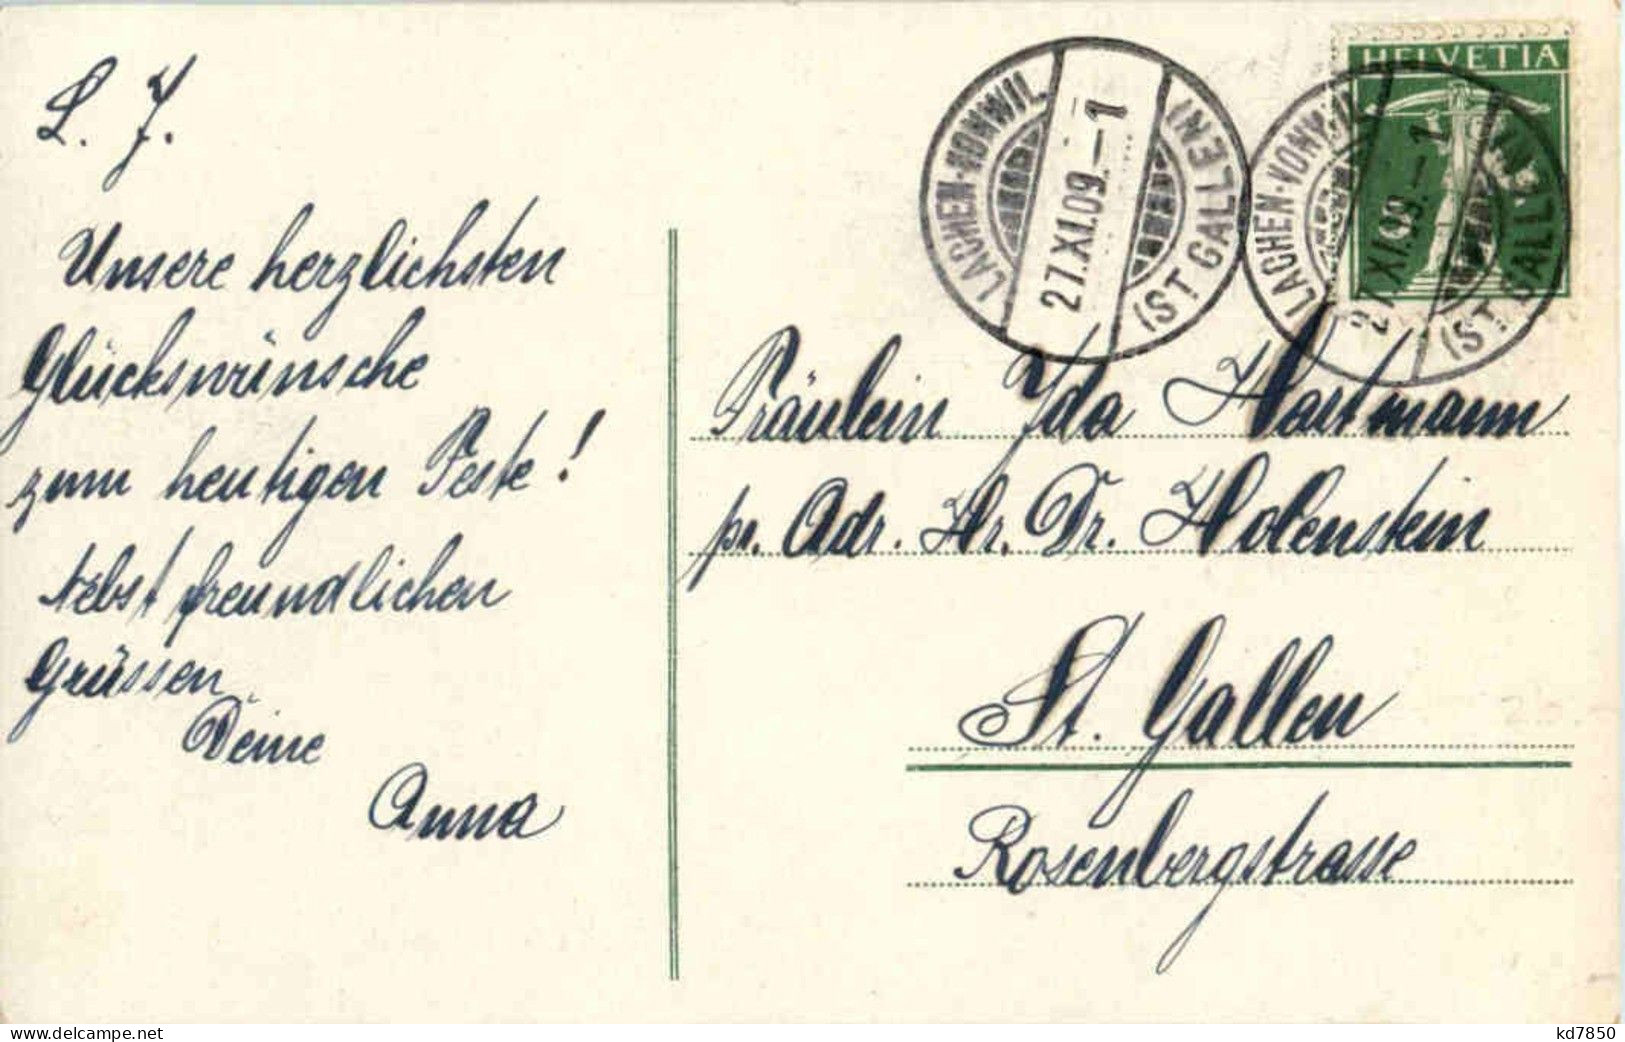 L. J.
Unsere herzlichsten
Glückswünsche
zum heutigen Feste!
Nebst freundlichen
Grüssen
Deine
Anna
HELVETIA
LACHEN-VONWIL
27.XI.09.–1
(ST GALLEN)
LACHEN-VONWIL
27.XI.09.–1
(ST GALLEN)
Fräulein Ida Hartmann
pr. Adr. Hr. Dr. Holenstein
St. Gallen
Rosenbergstrasse
www.delcampe.net
kd7850